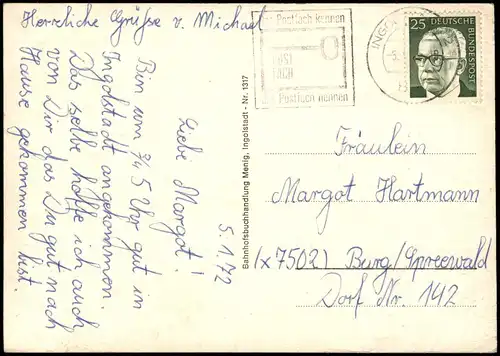 Herrliche Grüße v. Michael
5.1.72
Liebe Margot!
Bin um ¾ 5 Uhr gut in
Ingolstadt angekommen.
Das selbe hoffe ich auch
von Dir das Du gut nach
Hause gekommen bist.
Bahnhofsbuchhandlung Menig, Ingolstadt - Nr. 1317
Postfach kennen
POST
FACH
Postfach nennen
INGO
25 DEUTSCHE
BUNDESPOST
Fräulein
Margot Hartmann
(x7502) Burg/Spreewald
Dorf Nr. 142